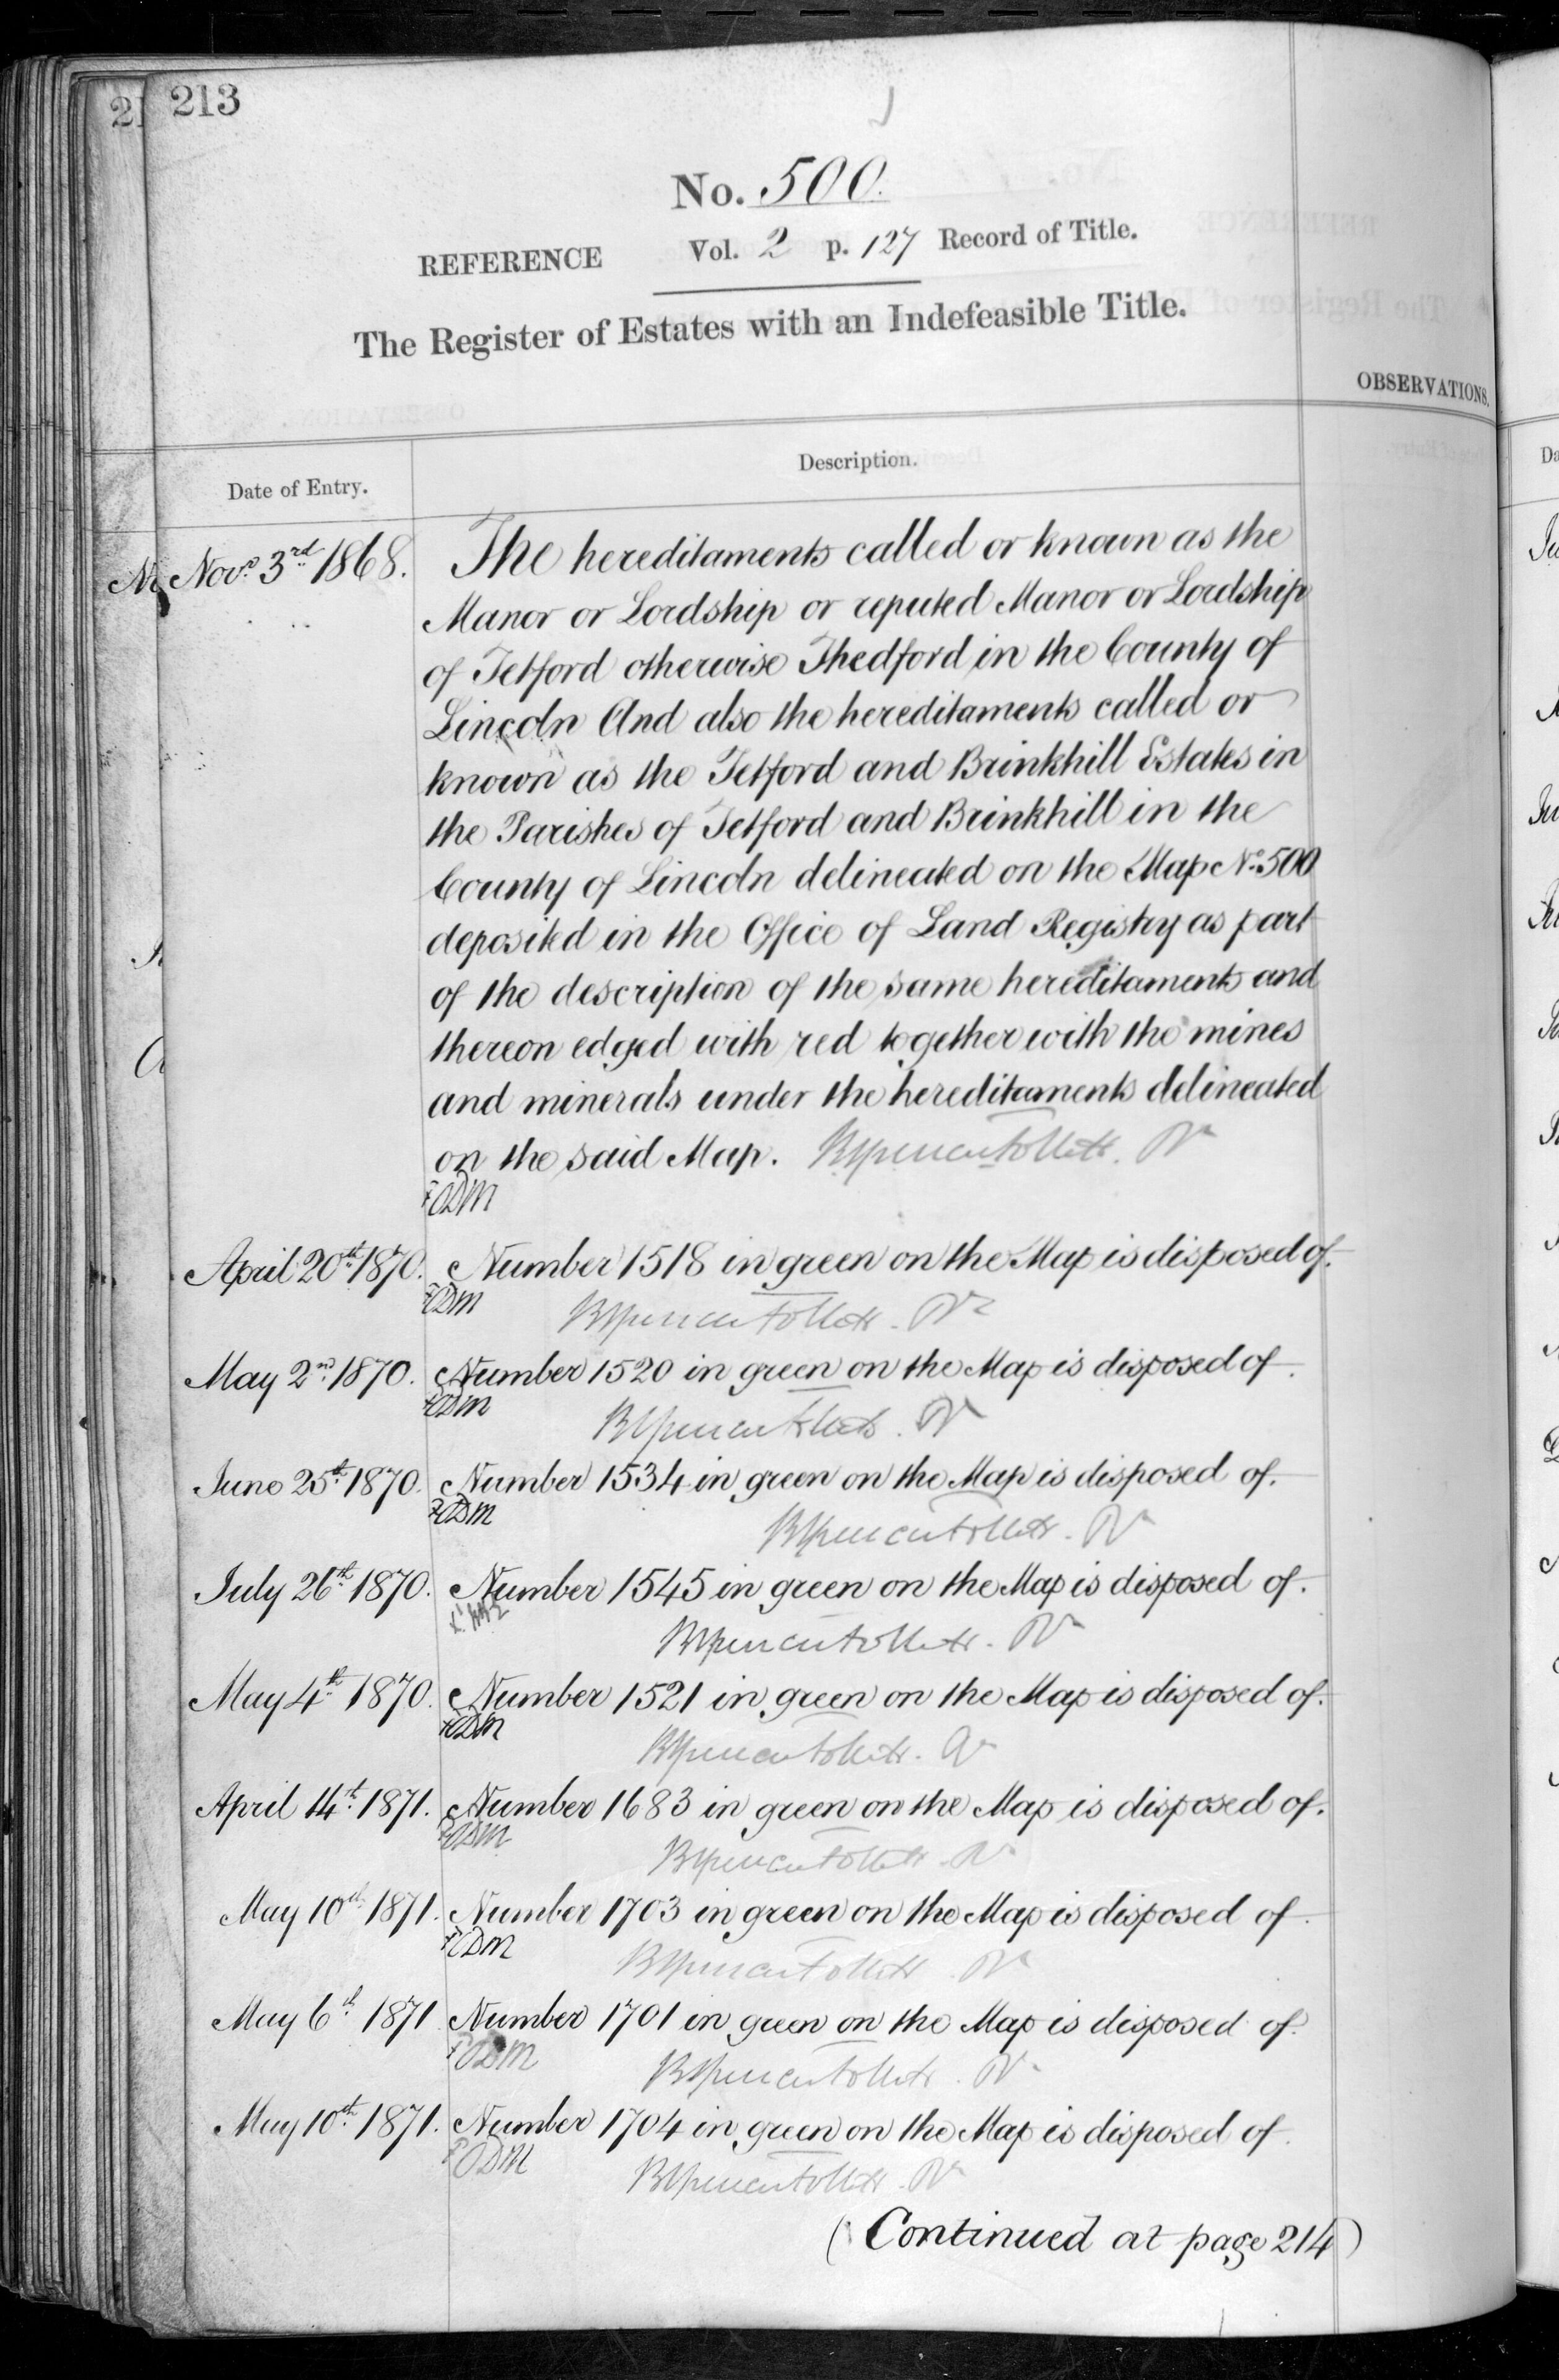 213
No. 500.
REFERENCE Vol. 2 p. 127 Record of Title.
The Register of Estates with an Indefeasible Title.
OBSERVATIONS.
Date of Entry. Description.
Novr. 3rd 1868. The hereditaments called or known as the
Manor or Lordship or reputed Manor or Lordship
of Tetford otherwise Thedford in the County of
Lincoln And also the hereditaments called or
known as the Tetford and Brinkhill Estates in
the Parishes of Tetford and Brinkhill in the
County of Lincoln delineated on the Map No. 500
deposited in the Office of Land Registry as part
of the description of the same hereditaments and
thereon edged with red together with the mines
and minerals under the hereditaments delineated
on the said Map.
April 20th 1870. Number 1518 in green on the Map is disposed of.
May 2nd 1870. Number 1520 in green on the Map is disposed of.
June 25th 1870. Number 1534 in green on the Map is disposed of.
July 26th 1870. Number 1545 in green on the Map is disposed of.
May 4th 1870. Number 1521 in green on the Map is disposed of.
April 14th 1871. Number 1683 in green on the Map is disposed of.
May 10th 1871. Number 1703 in green on the Map is disposed of.
May 6th 1871 Number 1701 in green on the Map is disposed of.
May 10th 1871. Number 1704 in green on the Map is disposed of.
(Continued at page 214)